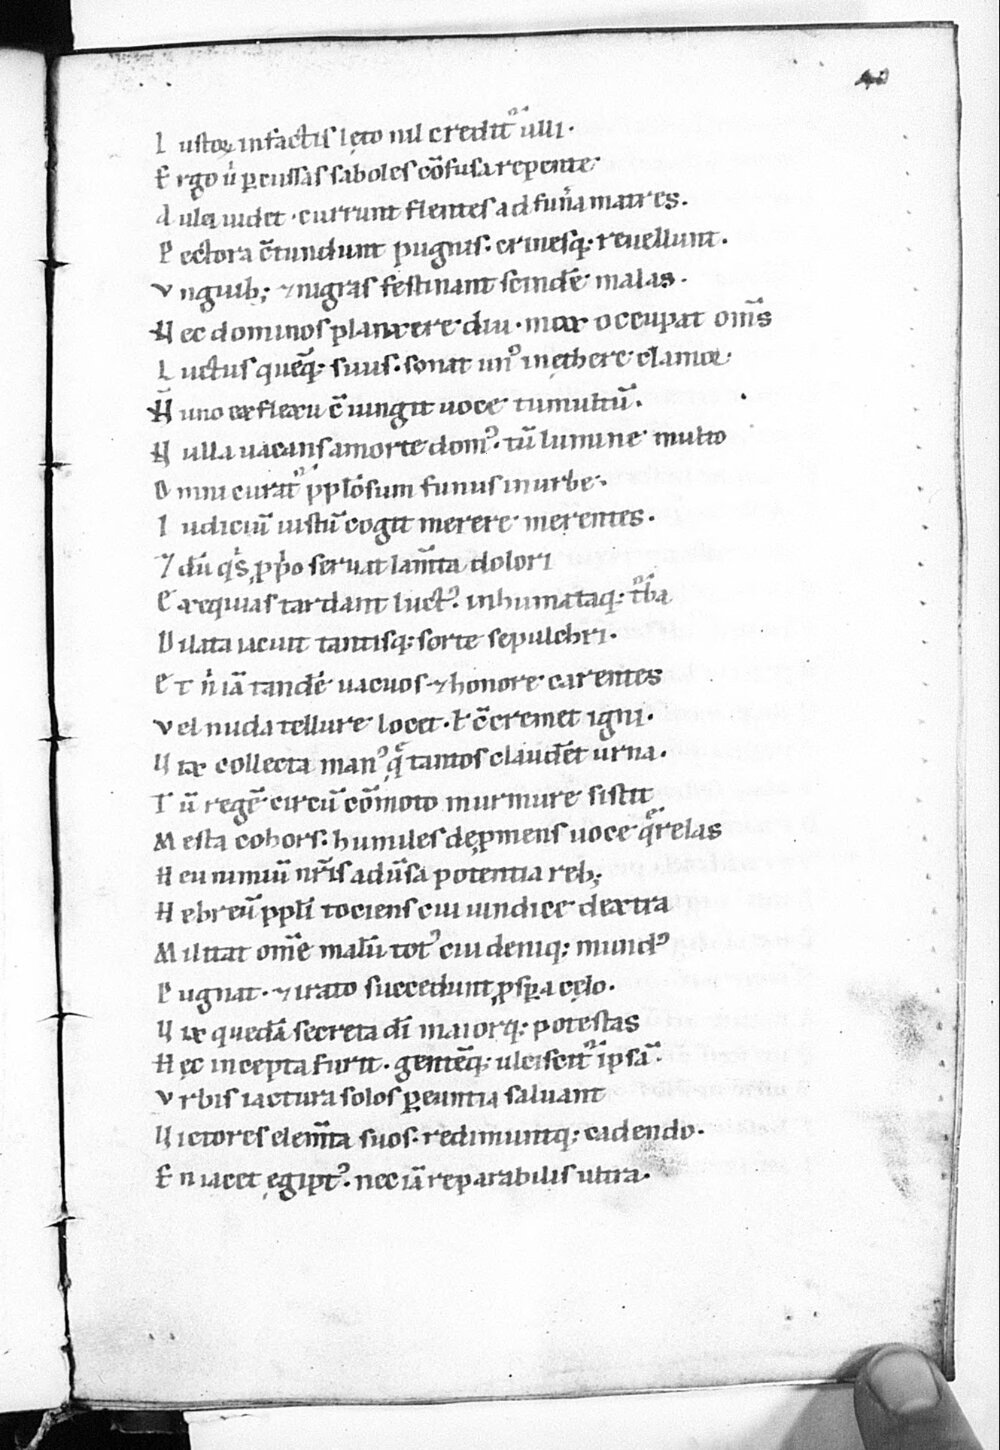 40
Lustoꝝ infactis lęto nil credit᷑ ulli·
Ergo ů ꝑcussas saboles cōfusa repente
Aula uidet · currunt flentes ad fun̄a matres.
Pectora c̄tundunt pugnis· crinesq; reuellunt.
Vnguib; ⁊ nigras festinant scindē malas·
Hec dominos planxere diu · mox occupat om̄s
Luctus quēq; suus· sonat un᾽ inęthere clamor·
H̄ uno ex flexu c̄iungit uoce tumultū.
Nulla uacans a morte dom᾽· tū lumine multo
Omni curat᷑ ꝓplōsum funus in urbe·
Iudiciū iustū cogit merere merentes.
⁊ dū qͥs ꝓpͥo seruat lam̄ta dolori
Exequias tardant luct᾽· inhumataq; t᷑ba
Dilata iacuit tantisq; sorte sepulchri·
Et n̊ iā tandē uacuos ⁊ honore carentes
Vel nuda tellure locet· ł c̄cremet igni·
Vix collecta man᾽ q̄ tantos claudēt urna·
Tū regē circū cōmoto murmure sistit
Mesta cohors· humiles deꝓmens uoce q̄relas
Heu nimiū nr̄is adūsa potentia reb;
Hebreū ppłi tociens cui uindice dextra
Militat om̄e malū tot᾽ cui deniq; mund᾽
Pugnat· ⁊ irato succedunt ꝓsꝑa cęlo.
Vix quedā secreta dī maiorq; potestas
Hęc incepta furit· gentēq; ulciscit᷑ ipsā·
Vrbis iactura solos ꝑeuntia saluant
Victores elem̄ta suos· redimuntq; cadendo·
En iacet ęgipt᾽· nec iā reparabilis ultra·